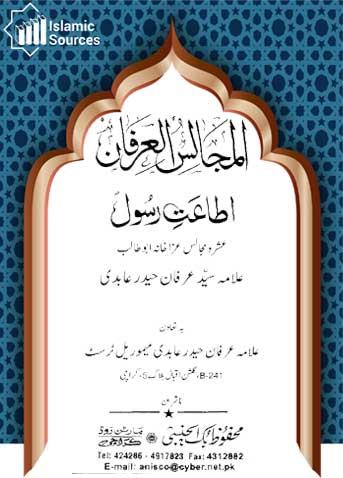 Islamic
Sources
المجالس العرفان
اطاعتِ رسول
عشرہ مجالس عزا خانہ ابو طالب
علامہ سیّد عرفان حیدر عابدی
بہ تعاون
علامہ عرفان حیدر عابدی میموریل ٹرسٹ
B-241، گلشن اقبال بلاک 5، کراچی
ناشرین
محفوظ بک ایجنسی مارٹن روڈ کراچی
Tel: 424286 - 4917823 Fax: 4312882
E-mail: anisco@cyber.net.pk